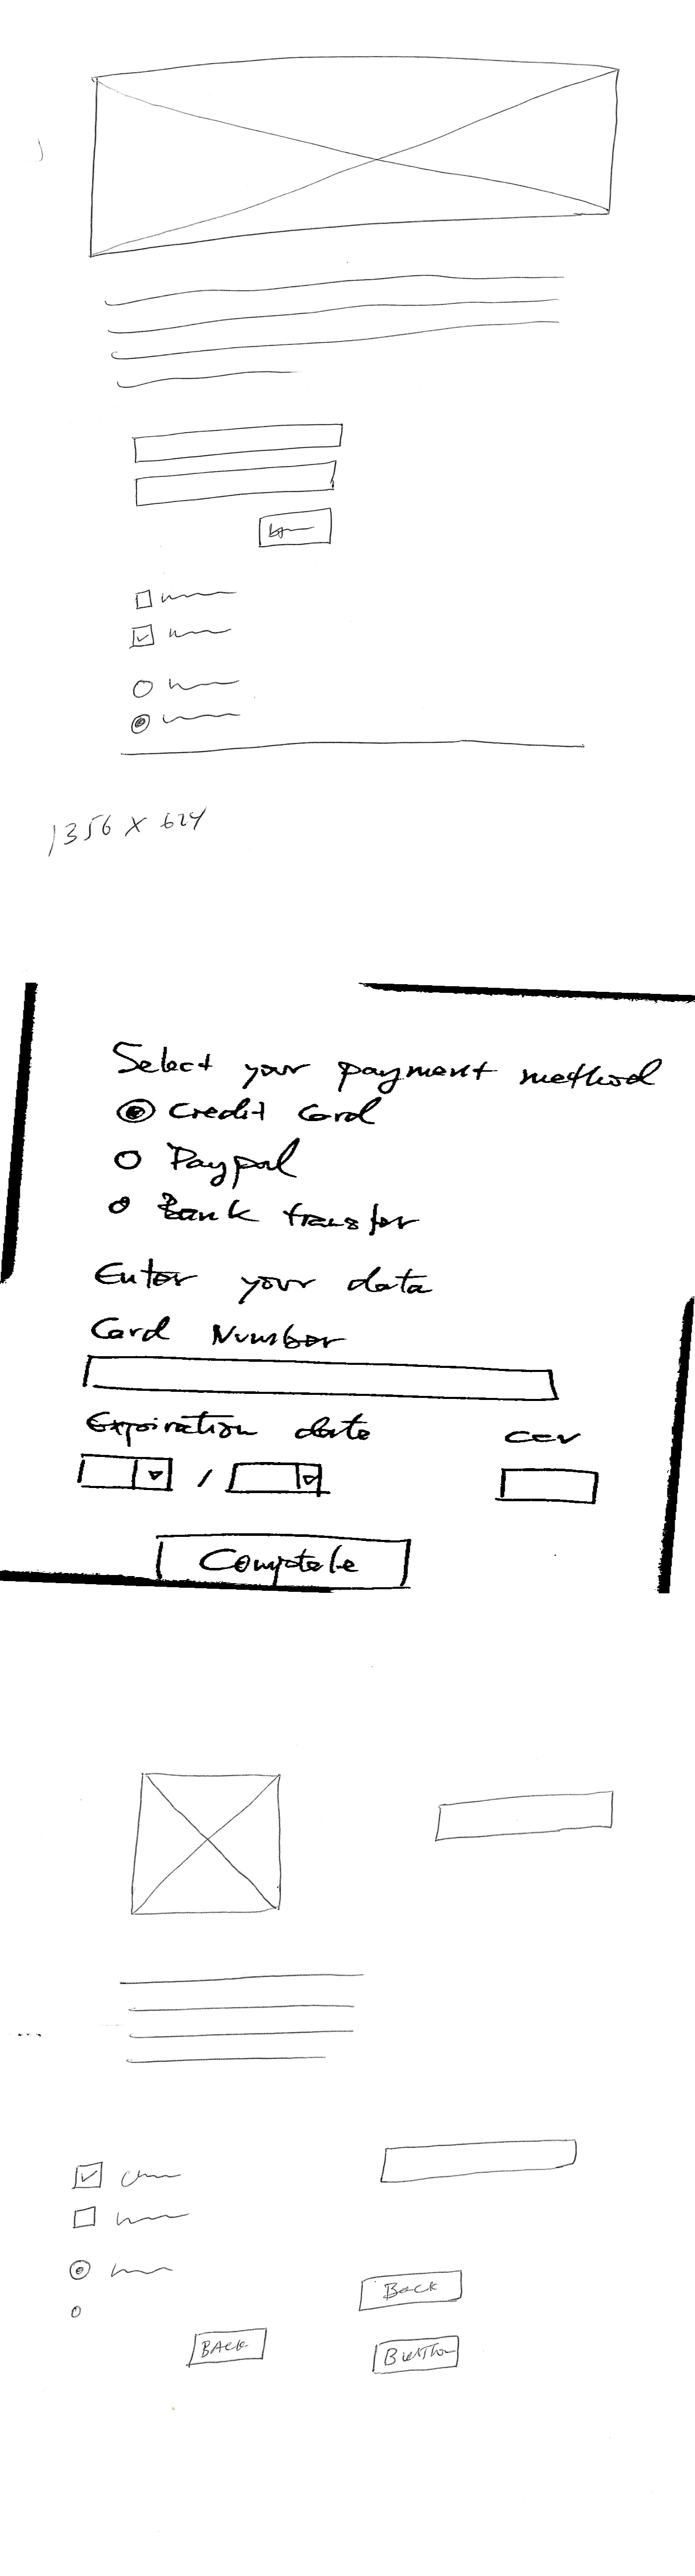 1356 x 624
Select your payment method
Credit Card
Paypal
Bank transfer
Enter your data
Card Number
Expiration date
ccv
/
Complete
Back
BACK
Button